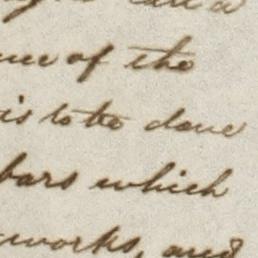 of the
is to be done
bars which
works, and